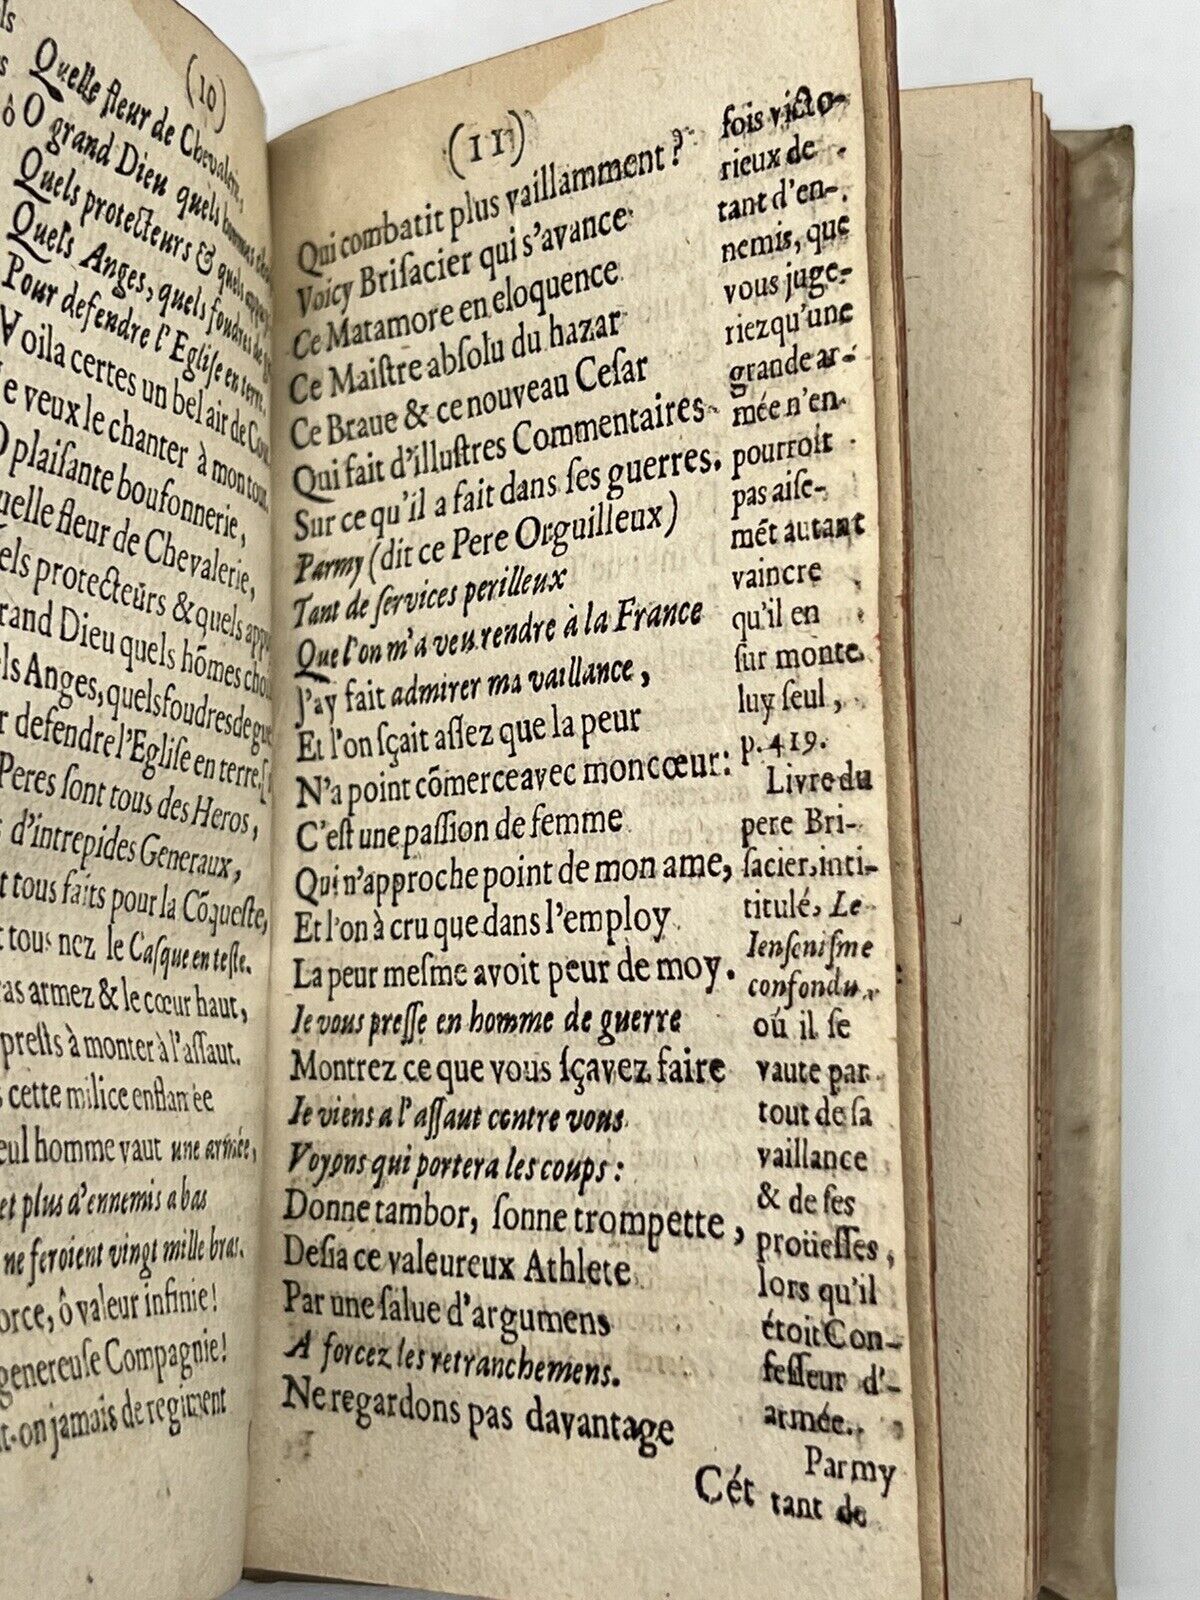 (10)
Quelle fleur de Chevalerie,
O grand Dieu quels hommes
Quels protecteurs & quels
Quels Anges, quels foudres de
Pour defendre l'Eglise en terre.
Voila certes un bel air de
e veux le chanter à mon tour.
O plaisante boufonnerie,
uelle fleur de Chevalerie,
els protecteurs & quels app
rand Dieu quels hõmes choi
ls Anges, quels foudres de gue
r defendre l'Eglise en terre,
Peres sont tous des Heros,
d'intrepides Generaux,
t tous faits pour la Cõqueste,
t tous nez le Casque en teste.
ras armez & le cœur haut,
prests à monter à l'assaut.
s cette milice enflamée
eul homme vaut une armée,
et plus d'ennemis a bas
ne feroient vingt mille bras.
orce, ô valeur infinie!
genereuse Compagnie!
t-on jamais de regiment
(11)
Qui combatit plus vaillamment?
Voicy Brisacier qui s'avance
Ce Matamore en eloquence
Ce Maistre absolu du hazar
Ce Braue & ce nouveau Cesar
Qui fait d'illustres Commentaires
Sur ce qu'il a fait dans ses guerres.
Parmy (dit ce Pere Orguilleux)
Tant de services perilleux
Que l'on m'a veu rendre à la France
J'ay fait admirer ma vaillance,
Et l'on sçait assez que la peur
N'a point cõmerce avec mon cœur:
C'est une passion de femme
Qui n'approche point de mon ame,
Et l'on à cru que dans l'employ
La peur mesme avoit peur de moy.
Ie vous presse en homme de guerre
Montrez ce que vous sçavez faire
Ie viens a l'assaut contre vous
Voyons qui portera les coups:
Donne tambor, sonne trompette,
Desia ce valeureux Athlete
Par une salue d'argumens
A forcez les retranchemens.
Ne regardons pas davantage
Cét
fois victo-
rieux de
tant d'en-
nemis, que
vous juge-
riez qu'une
grande ar-
mée n'en
pourroit
pas aise-
mét autant
vaincre
qu'il en
sur monte
luy seul,
p. 419.
Livre du
pere Bri-
sacier, inti-
titulé, Le
Iensenisme
confondu,
où il se
vaute par
tout de sa
vaillance
& de ses
proüesses,
lors qu'il
étoit Con-
fesseur d'-
armée.
Parmy
tant de